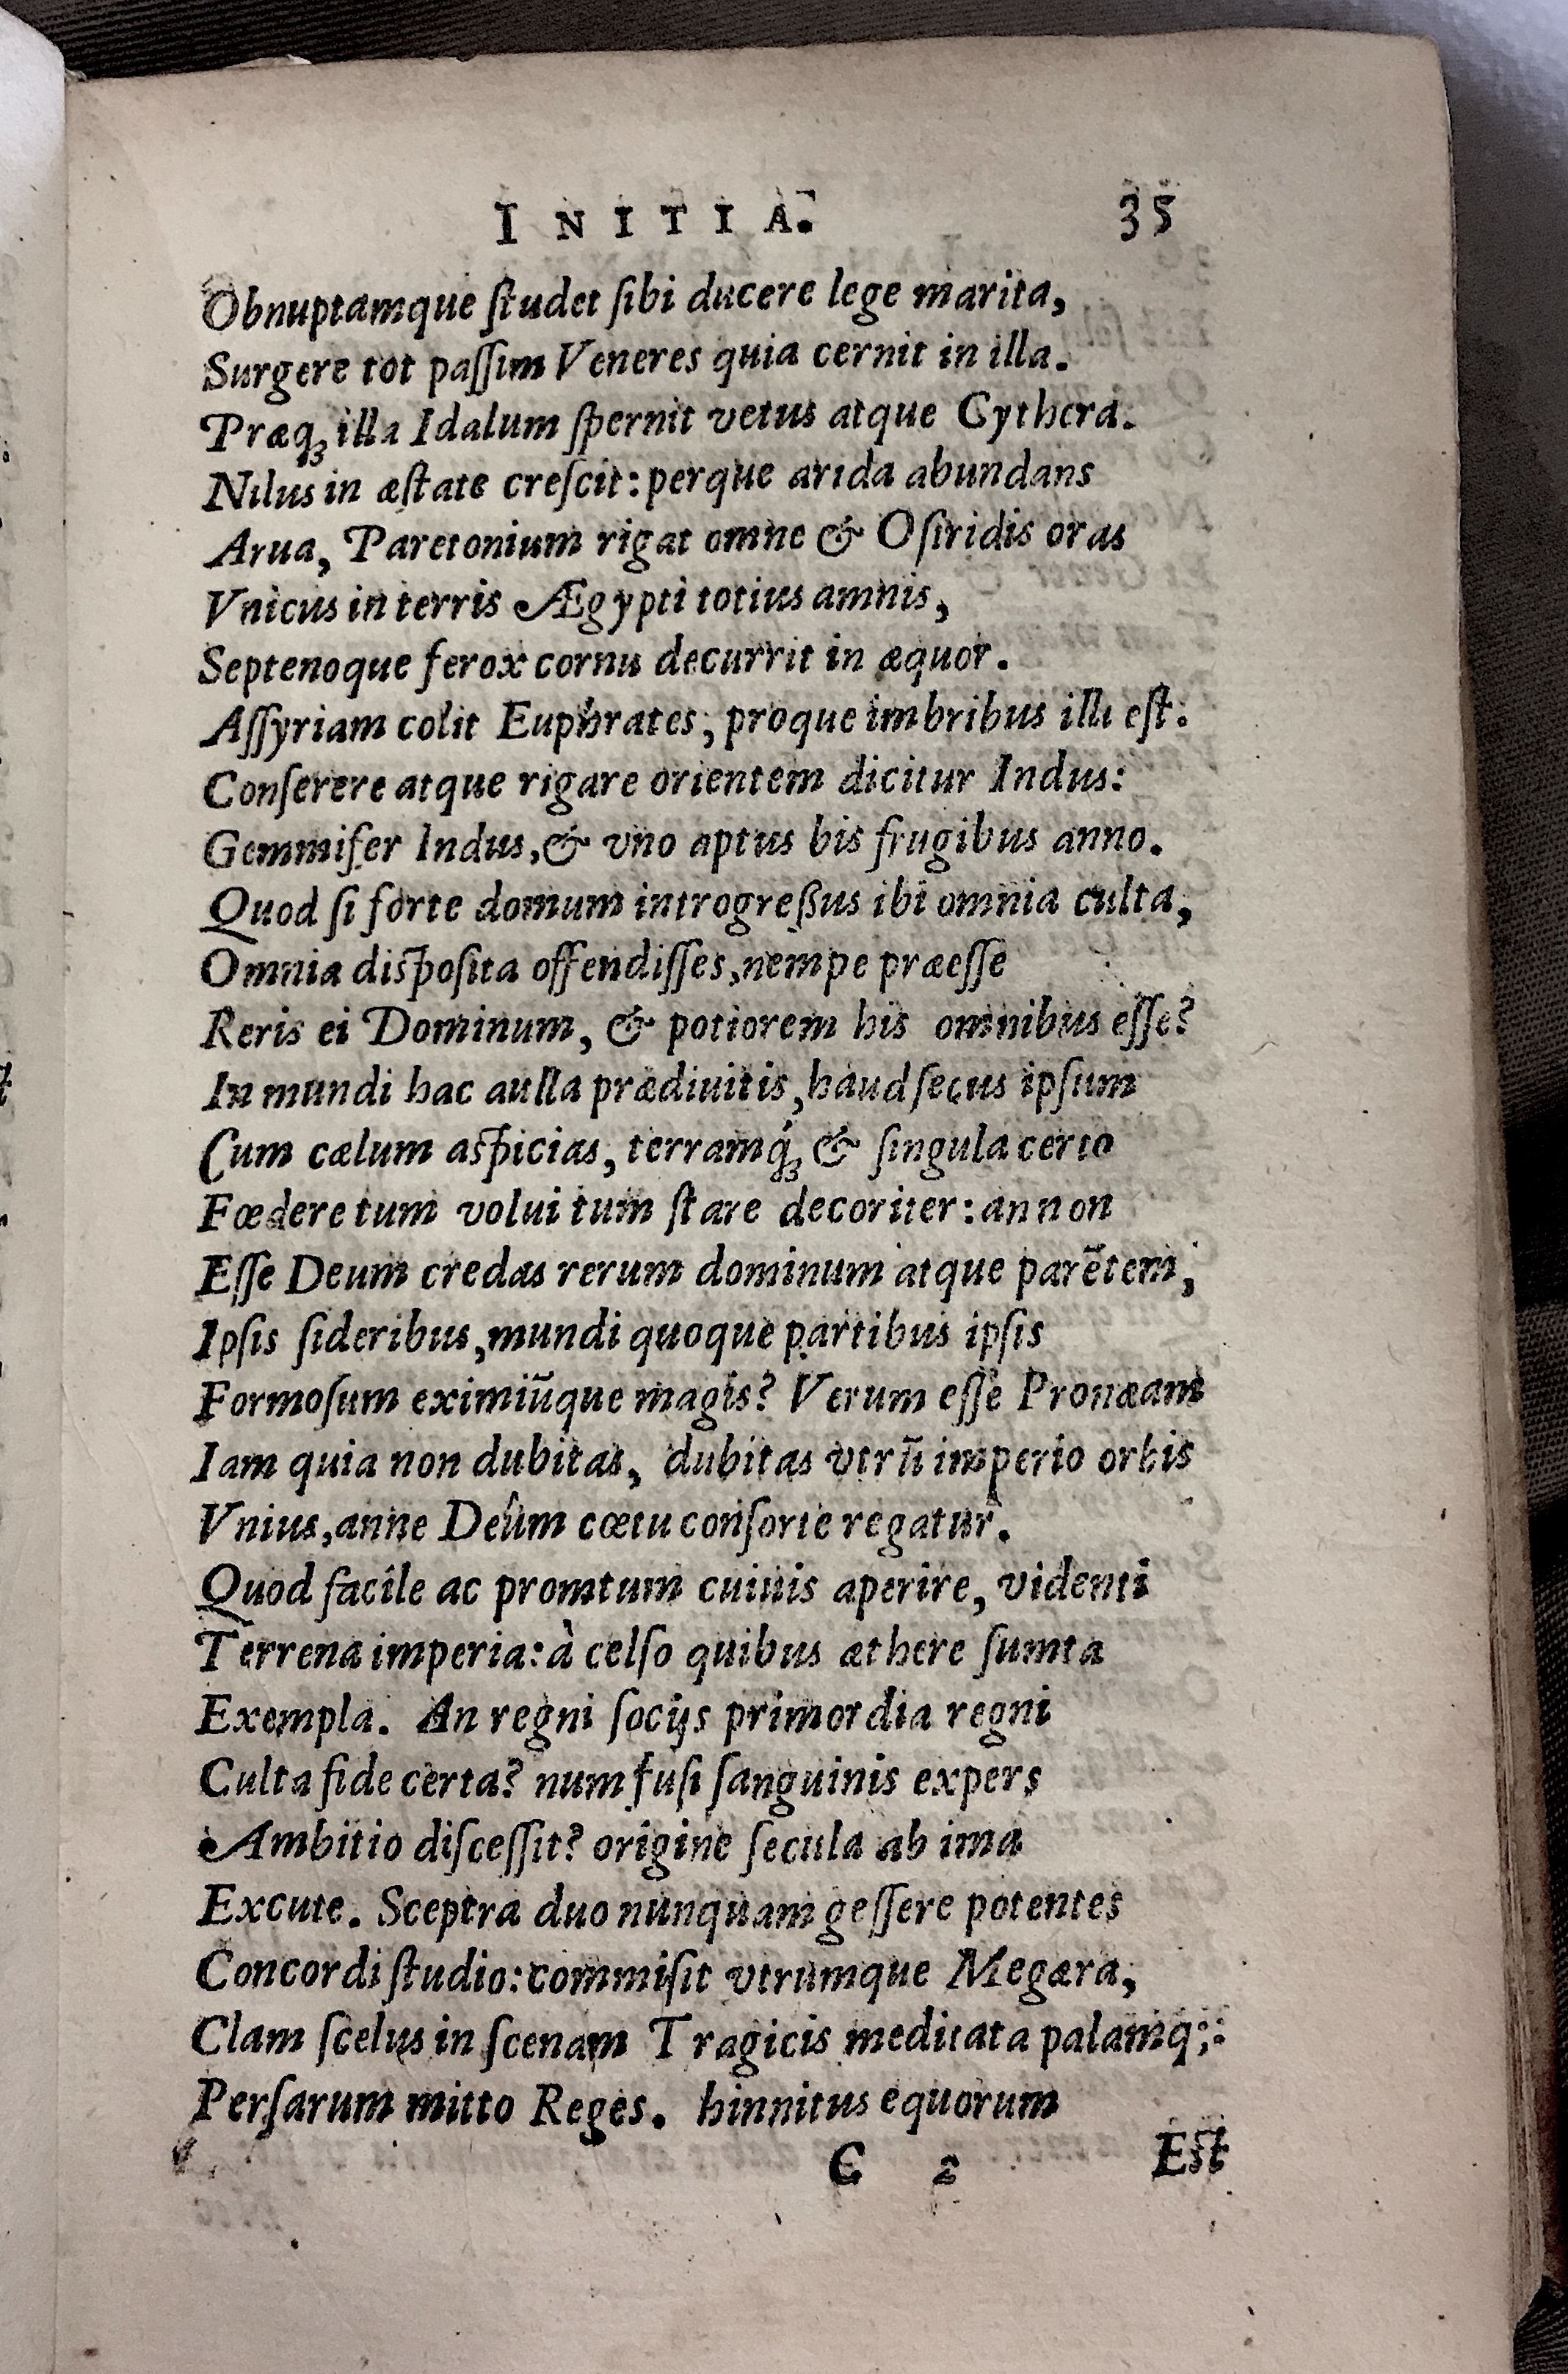 INITIA. 35
Obnuptamque ſtudet ſibi ducere lege marita,
Surgere tot paſſim Veneres quia cernit in illa.
Præq́; illa Idalum ſpernit vetus atque Cythera.
Nilus in æſtate creſcit: perque arida abundans
Arua, Paretonium rigat omne & Oſiridis oras
Vnicus in terris Ægypti totius amnis,
Septenoque ferox cornu decurrit in æquor.
Aſſyriam colit Euphrates; proque imbribus illi eſt:
Conſerere atque rigare orientem dicitur Indus:
Gemmifer Indus, & vno aptus bis frugibus anno.
Quod ſi forte domum introgreßus ibi omnia culta,
Omnia diſpoſita offendiſſes, nempe præeſſe
Reris ei Dominum, & potiorem his omnibus eſſe?
In mundi hac aulla prædiuitis, haud ſecus ipſum
Cum cælum aſpicias, terramq́; & ſingula certo
Fœdere tum volui tum ſtare decoriter: an non
Eſſe Deum credas rerum dominum atque parētem,
Ipſis ſideribus, mundi quoque partibus ipſis
Formoſum eximiūque magis? Verum eſſe Pronæam
Iam quia non dubitas, dubitas vtrū imperio orbis
Vnius, anne Deûm cœtu conſorte regatur.
Quod facile ac promtum cuiuis aperire, videnti
Terrena imperia: à celſo quibus æthere ſumta
Exempla. An regni ſocijs primordia regni
Culta fide certa? num fuſi ſanguinis expers
Ambitio diſceſſit? origine ſecula ab ima
Excute. Sceptra duo nunquam geſſere potentes
Concordi ſtudio: commiſit vtrumque Megæra,
Clam ſcelus in ſcenam Tragicis meditata palamq́;:
Perſarum mitto Reges. hinnitus equorum
C 2 Eſt